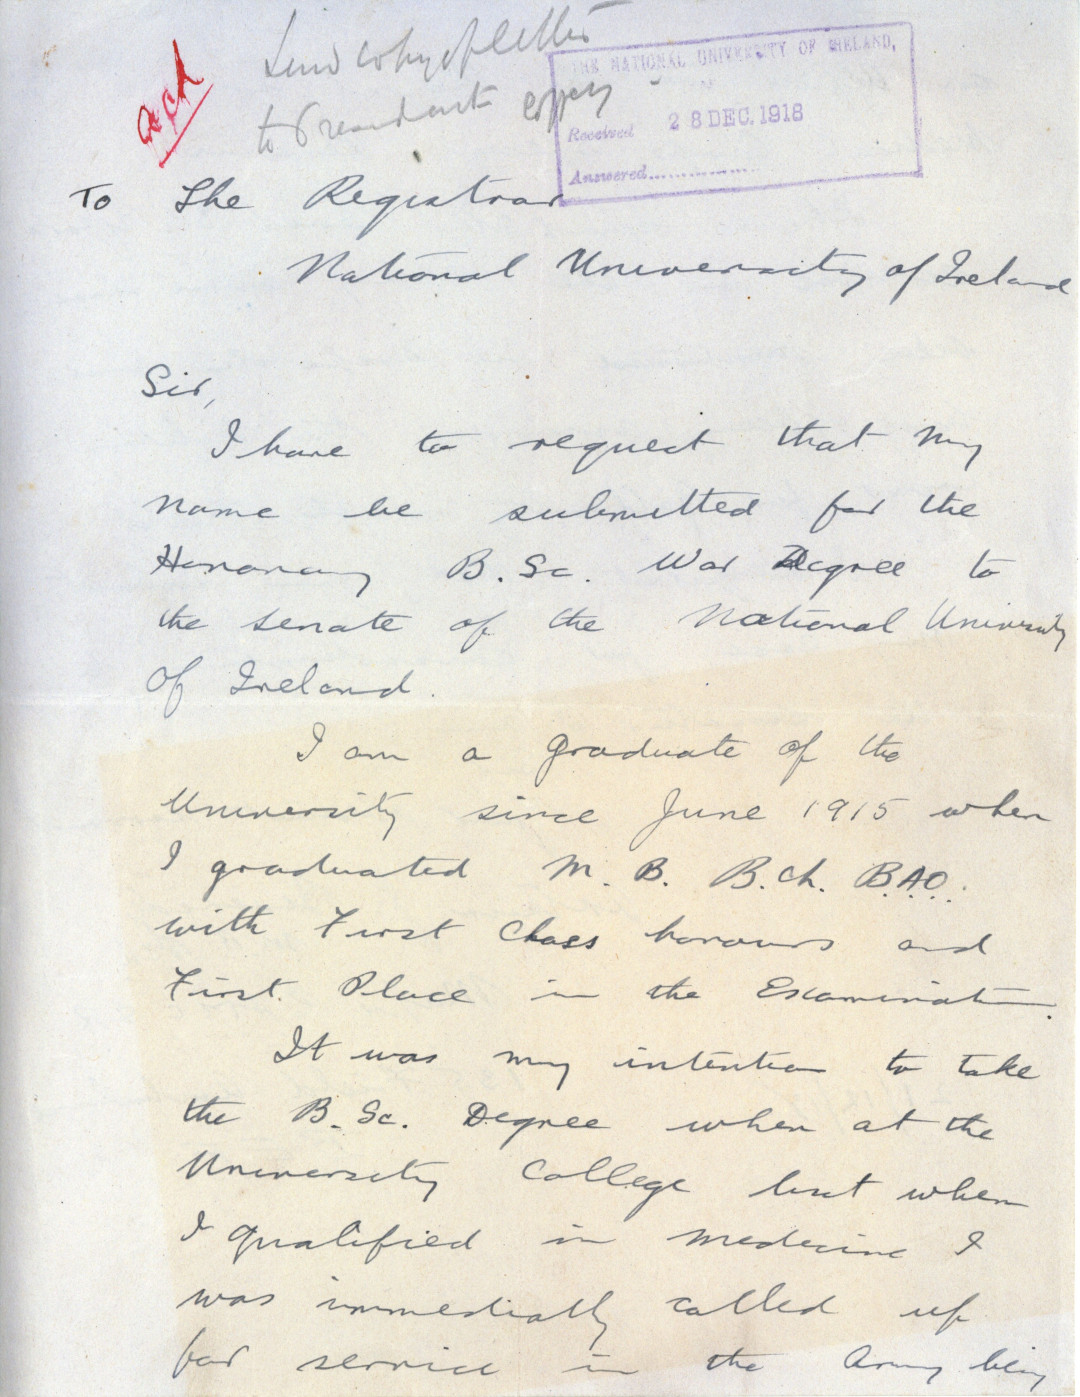 Send copy of letter
to Presidents
Ack
THE NATIONAL UNIVERSITY OF IRELAND,
Received 28 DEC. 1918
Answered..................
To The Registrar
National University of Ireland
Sir,
I have to request that my
name be submitted for the
Honorary B. Sc. War Degree to
the senate of the National University
of Ireland.
I am a graduate of the
University since June 1915 when
I graduated M. B. B.Ch. B.A.O.
with First Class honours and
First Place in the Examination.
It was my intention to take
the B. Sc. Degree when at the
University College but when
I qualified in medicine I
was immediatly called up
for service in the Army being